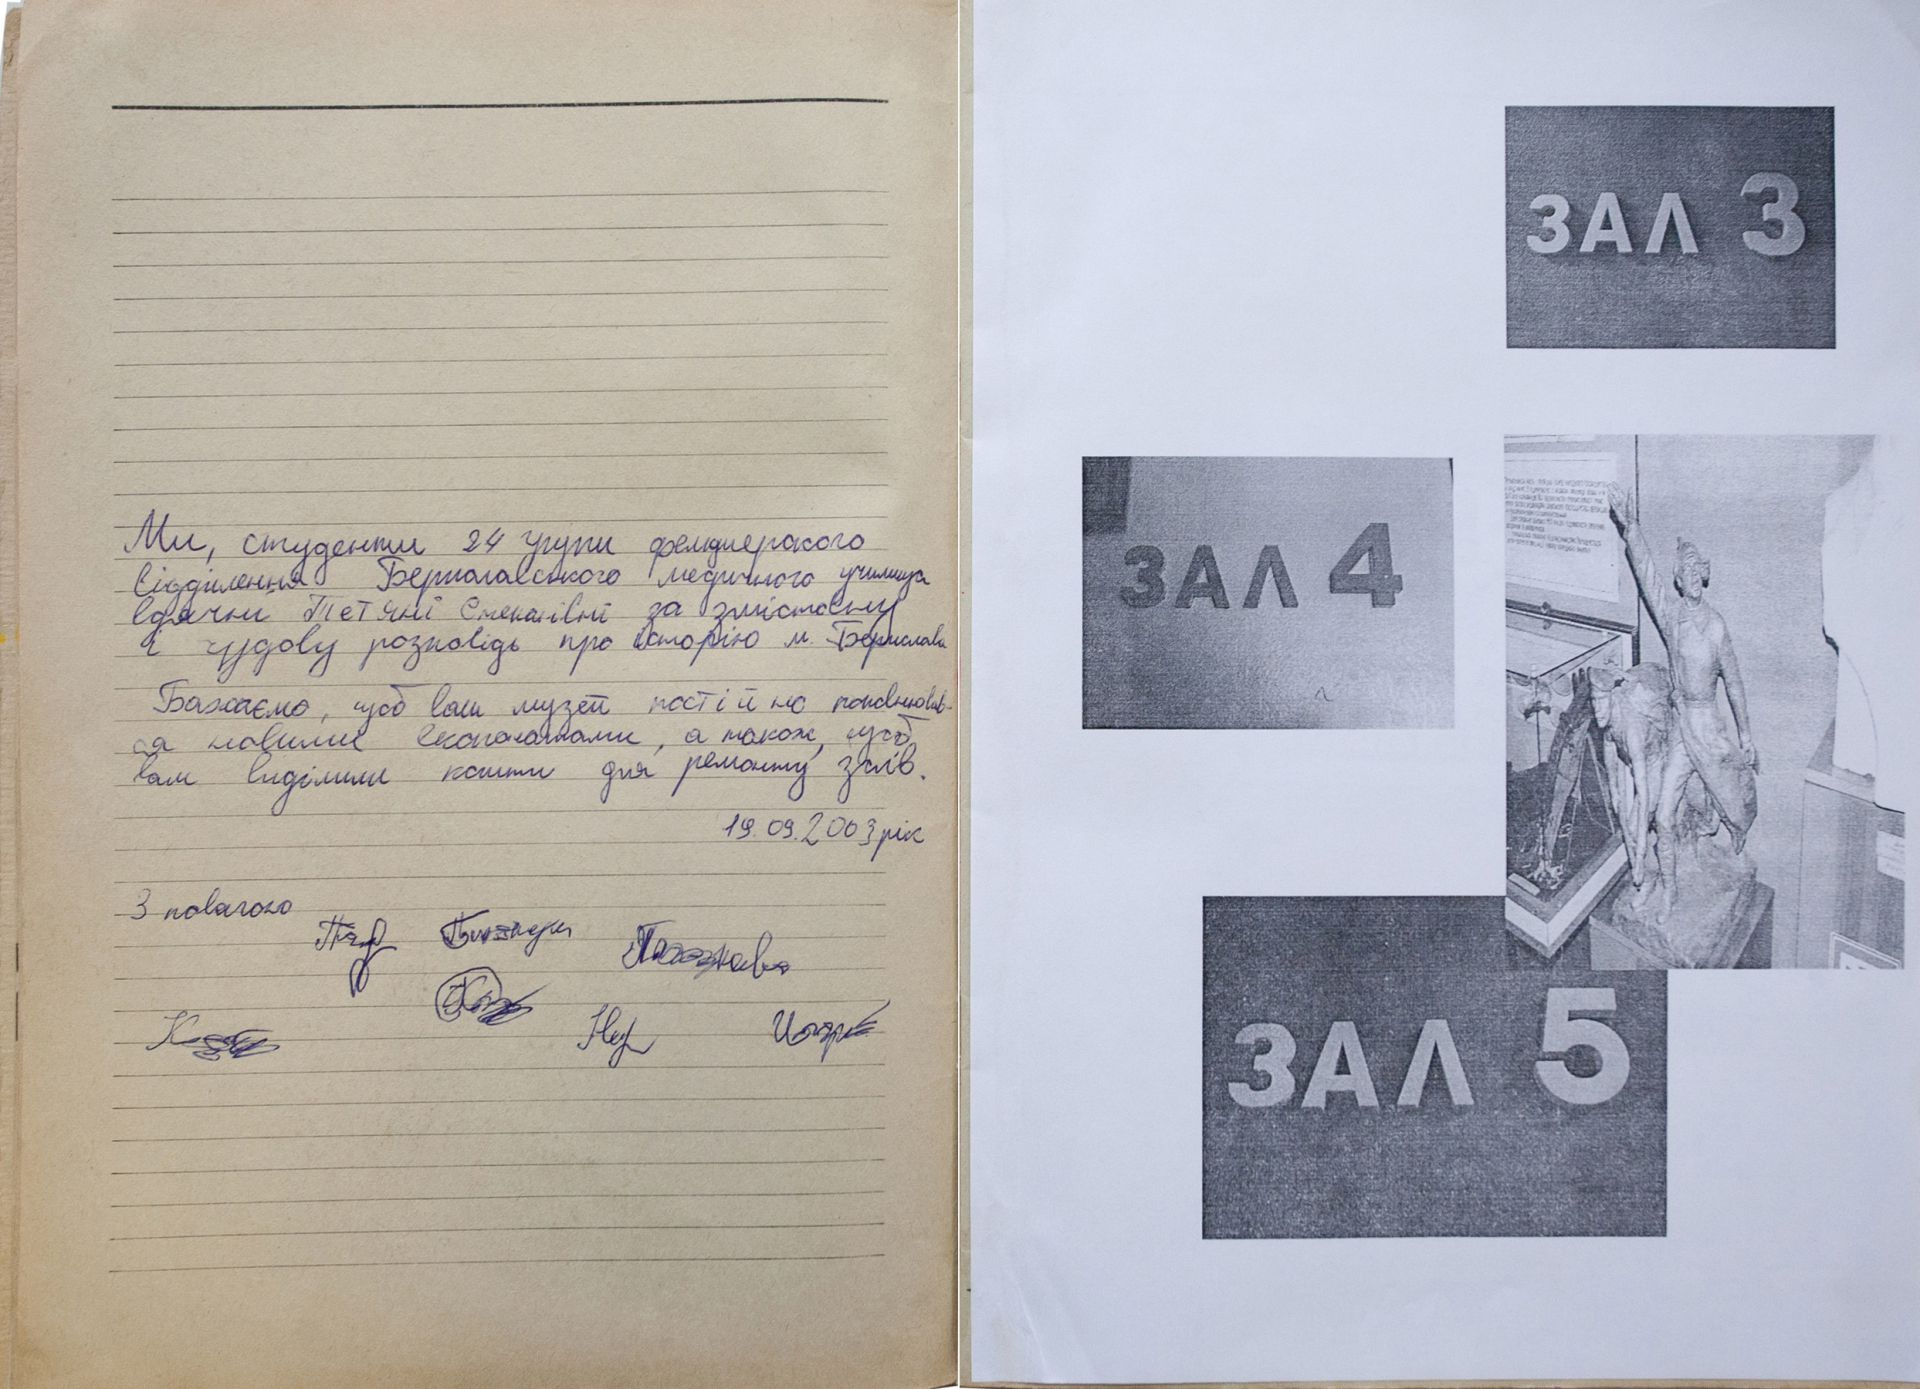 Ми, студенти 24 групи фельдшерского
відділення Бериславського медичного училища
вдячні Тетяні Степанівні за змістовну
і чудову розповідь про історію м. Берислава
Бажаємо, щоб ваш музей постійно поповнював-
ся новими експонатами, а також, щоб
вам виділили кошти для ремонту залів.
19.09.2003 рік
З повагою
ЗАЛ 3
ЗАЛ 4
ЗАЛ 5